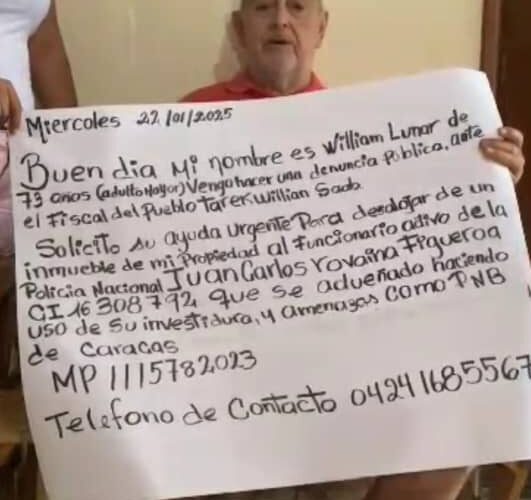 Miercoles 22/01/2025
Buen dia Mi nombre es William Lunar de
73 años (adulto Mayor) Vengo hacer una denuncia Pública, ante
el Fiscal del Pueblo Tarek Willian Saab.
Solicito su ayuda urgente Para desalojar de un
inmueble de mi Propiedad al funcionario activo de la
Policia Nacional Juan Carlos Yovaina Figueroa
CI 16308792 que se adueñado haciendo
uso de su investidura, y amenazas como PNB
de Caracas
MP 1115782023
Telefono de Contacto 04241685567